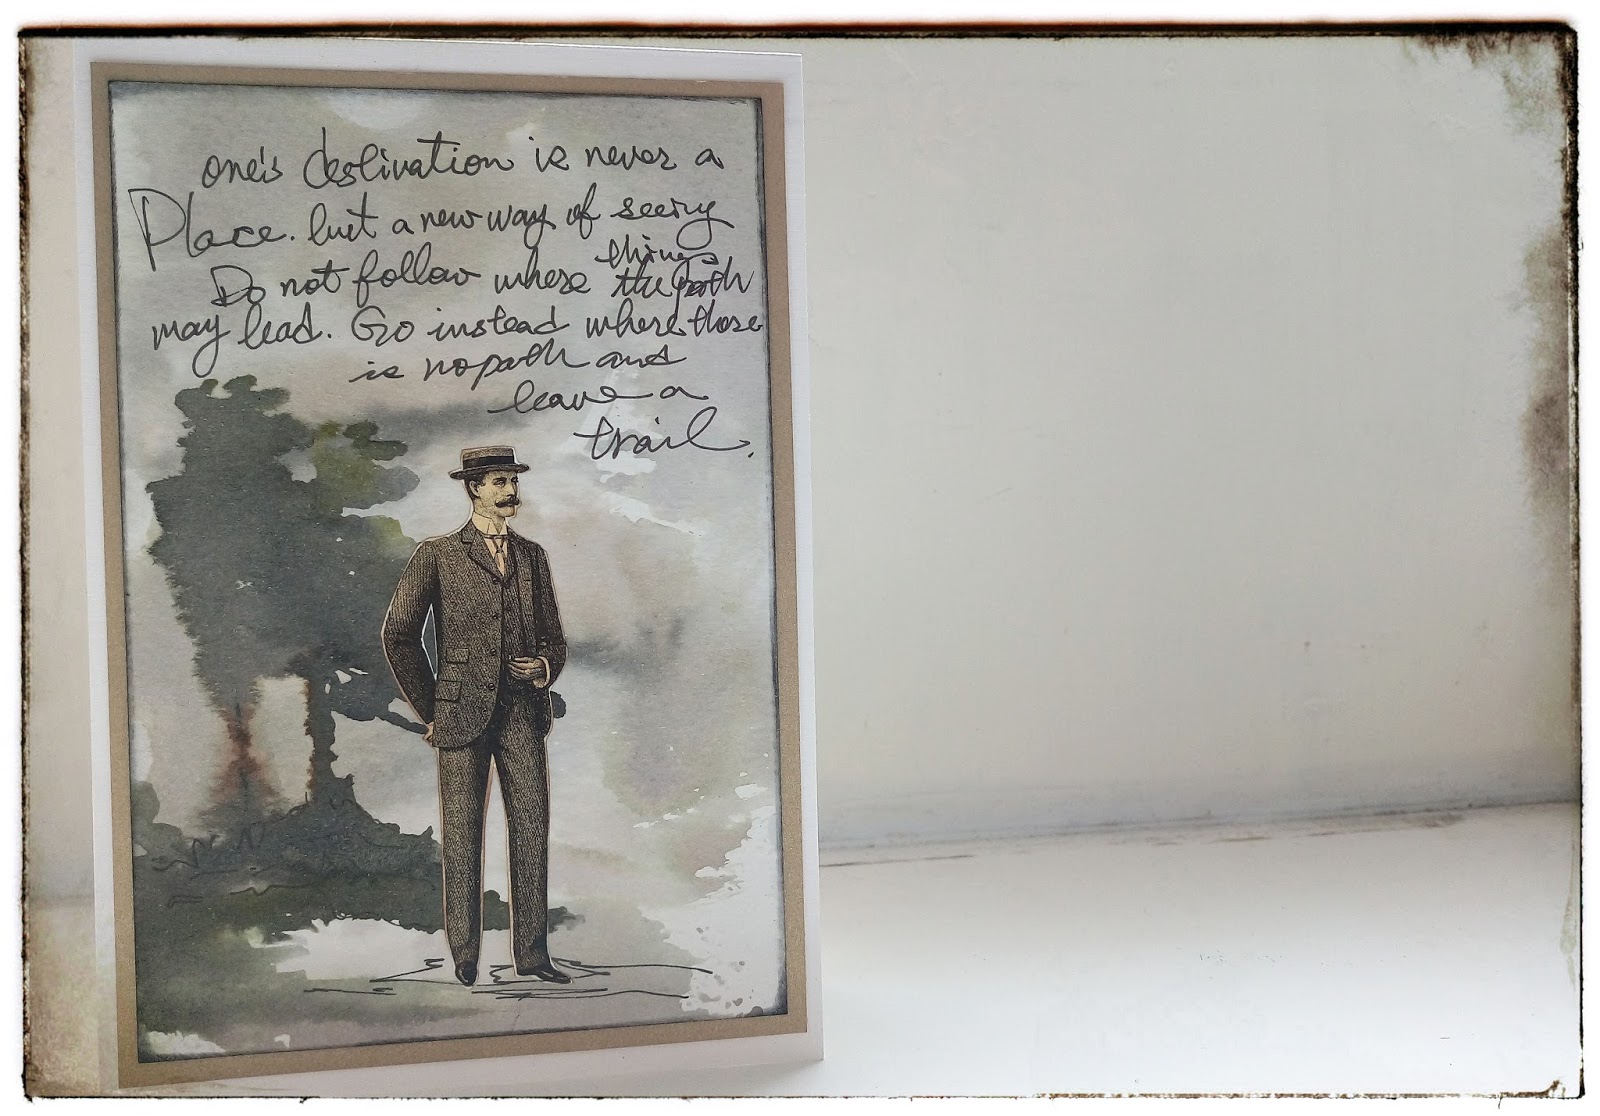 one's destination is never a
Place. but a new way of seeing
things
Do not follow where the path
may lead. Go instead where there
is no path and
leave a
trail.